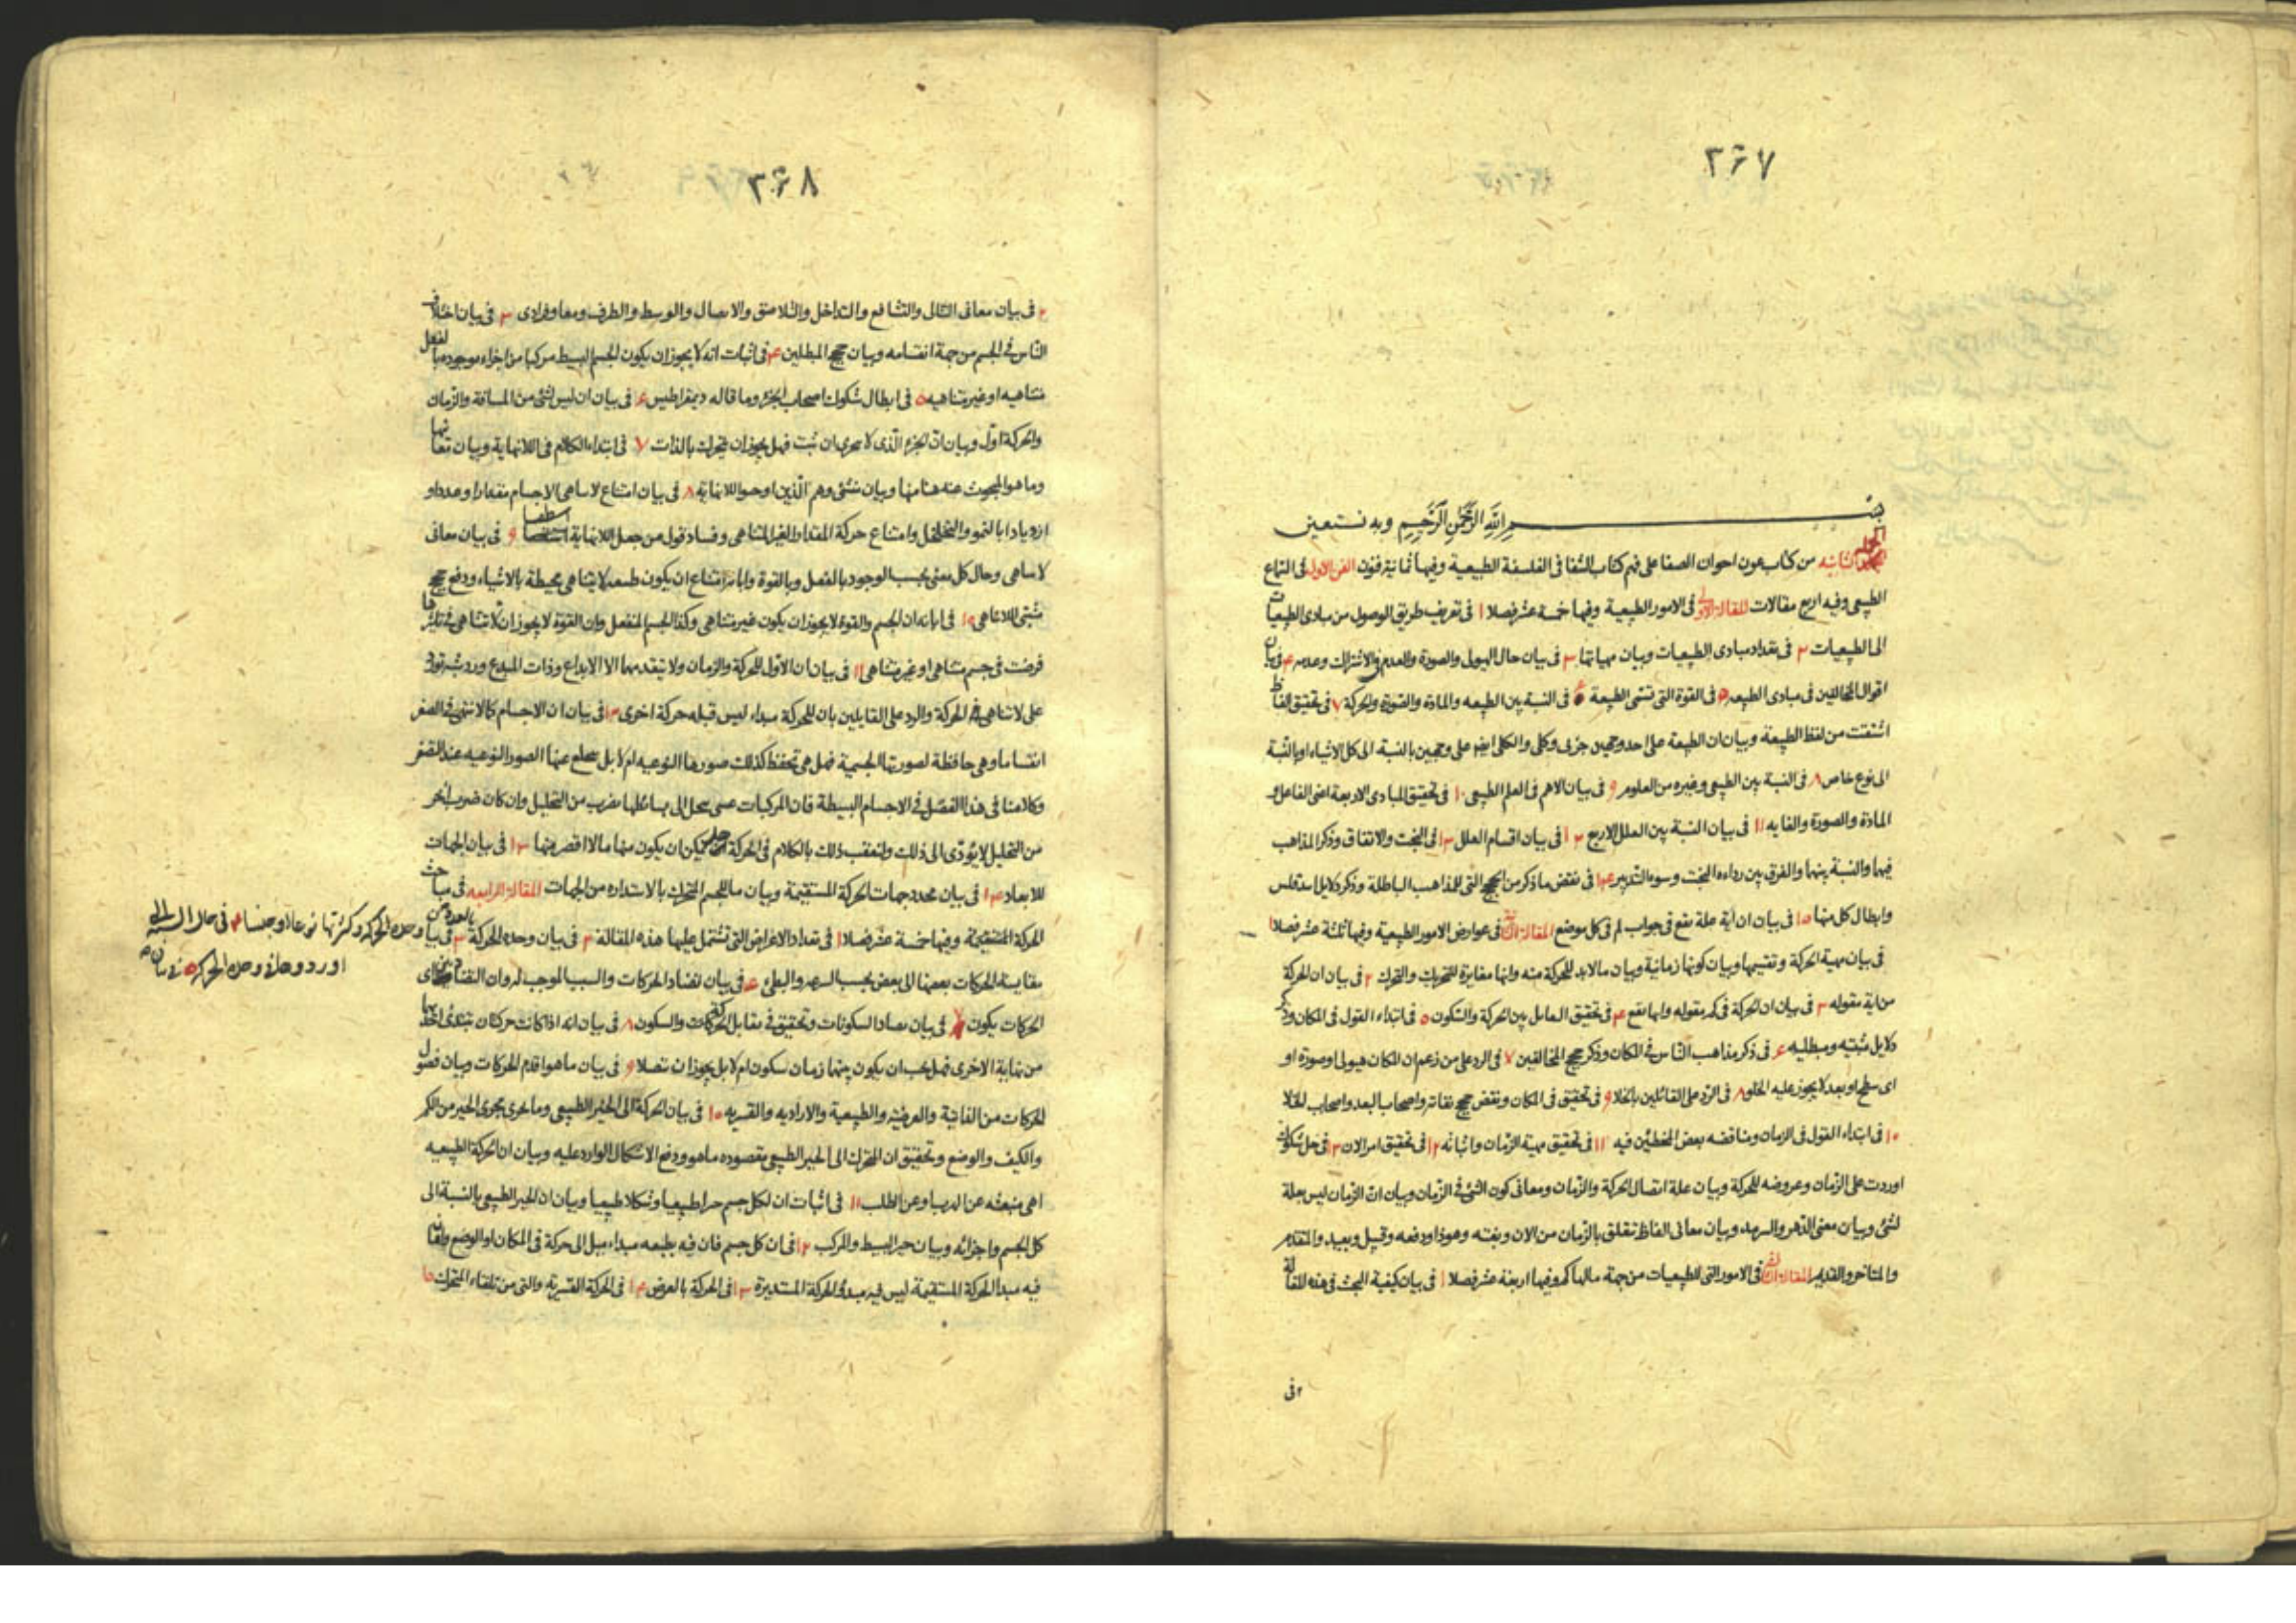 ۲۶۷
بسم الله الرحمن الرحيم وبه نستعين
الجملة الثانيه من كتاب عون اخوان الصفا على فهم كتاب الشفا فى الفلسفة الطبيعية وفيها ثمانية فنون الفن الاول فى السماع
الطبيعى وفيه اربع مقالات المقالة الاولى فى الامور الطبيعية وفيها خمسة عشر فصلا ۱ فى تعريف طريق الوصول من مبادى الطبيعيات
الى الطبيعيات ۲ فى تعداد مبادى الطبيعيات وبيان مهياتها ۳ فى بيان حال الهيولى والصورة والعدم فى الاشتراك وعدمه ۴ فى بيان
اقوال المخالفين فى مبادى الطبيعه ۵ فى القوة التى تسمى الطبيعة ۶ فى النسبة بين الطبيعه والمادة والصورة والحركة ۷ فى تحقيق الفاظ
اشتقت من لفظ الطبيعة وبيان ان الطبيعة على احد وجهين جزئى وكلى والكلى ايضا على وجهين بالنسبة الى كل الاشياء او بالنسبة
الى نوع خاص ۸ فى النسبة بين الطبيعى وغيره من العلوم ۹ فى بيان الاهم فى العلم الطبيعى ۱۰ فى تحقيق المبادى الاربعة اعنى الفاعل و
المادة والصورة والغايه ۱۱ فى بيان النسبة بين العلل الاربع ۱۲ فى بيان اقسام العلل ۱۳ فى البخت والاتفاق وذكر المذاهب
فيها والنسبة بينهما والفرق بين رداءه البخت وسوء التدبير ۱۴ فى نقض ما ذكر من الحجج التى للمذاهب الباطلة وذكر دلايل
وابطال كل منها ۱۵ فى بيان ان اية علة يقع فى جواب لم فى كل موضع المقالة الثانية فى عوارض الامور الطبيعية وفيها ثلثة عشر فصلا ۱
فى بيان مهية الحركة وتقسيمها وبيان كونها زمانية وبيان مالابد للحركة منه وانها مغايرة للتحريك والتحرك ۲ فى بيان ان الحركة
من اية مقوله ۳ فى بيان ان الحركة فى كم مقوله وايها تقع ۴ فى تحقيق التقابل بين الحركة والسكون ۵ فى ابتداء القول فى المكان وذكر
دلايل مثبتيه ومبطليه ۶ فى ذكر مذاهب الناس فى المكان وذكر حجج المخالفين ۷ فى الرد على من زعم ان المكان هيولى او صورة او
اى سطح او بعد لا يجوز عليه الخلو ۸ فى الرد على القائلين بالخلا ۹ فى تحقيق فى المكان ونقض حجج نفاته واصحاب البعد واصحاب الخلا
۱۰ فى ابتداء القول فى الزمان ومناقضه بعض المخطئين فيه ۱۱ فى تحقيق مهية الزمان واثباته ۱۲ فى تحقيق امر الان ۱۳ فى حل شكوك
اوردت على الزمان وعروضه للحركة وبيان علة اتصال الحركة والزمان ومعانى كون الشئ فى الزمان وبيان ان الزمان ليس بعلة
لشئ وبيان معنى الدهر والسرمد وبيان معانى الفاظ تتعلق بالزمان من الان وبغته وهوذا ودفعه وقبيل وبعيد والمتقدم
والمتاخر والقديم المقالة الثالثة فى الامور التى للطبيعيات من جهة مالها كم وفيها اربعة عشر فصلا ۱ فى بيان كيفية البحث فى هذه المقالة
۲ فى
۲۶۸
۲ فى بيان معانى التتالى والتشافع والتداخل والتلاصق والاتصال والوسط والطرف ومعا وفرادى ۳ فى بيان اختلاف
الناس فى الجسم من جهة انقسامه وبيان حجج المبطلين ۴ فى اثبات انه لا يجوز ان يكون الجسم البسيط مركبا من اجزاء موجودة بالفعل
متناهيه او غير متناهيه ۵ فى ابطال شكوك اصحاب الجزء وما قاله ديمقراطيس ۶ فى بيان ان ليس لشئ من المسافة والزمان
والحركة اول وبيان ان الجزء الذى لا يتجزى ان ثبت فهل يجوز ان يتحرك بالذات ۷ فى ابتداء الكلام فى اللانهاية وبيان معانيها
وما هو المبحوث عنه ههنا منها وبيان مثبتى وهم الذين اوجبوا اللانهاية ۸ فى بيان امتناع لاتناهى الاجسام مقدارا وعددا و
ازديادا بالنمو والتخلخل وامتناع حركة المقدار الغير المتناهى وفساد قول من جعل اللانهاية اسطقسا ۹ فى بيان معانى
لاتناهى وحال كل معنى بحسب الوجود بالفعل وبالقوة وامتناع ان يكون طبيعه لايتناهى محيطة بالاشياء ودفع حجج
مثبتى اللاتناهى ۱۰ فى ابانه ان الجسم والقوة لا يجوز ان يكون غير متناهى وكذا الجسم المنفعل وان القوة لا يجوز ان لاتتناهى فى تاثيرها
فرضت فى جسم متناهى او غير متناهى ۱۱ فى بيان ان الاول للحركة والزمان ولا يتقدمهما الا الابداع وذات المبدع ورد
على لاتناهى فى الحركة والرد على القايلين بان للحركة مبداء ليس قبله حركة اخرى ۱۲ فى بيان ان الاجسام كما لا تنتهى فى الصغر
انقساما وهى حافظة لصورتها الجسمية فهل هى تحفظ كذلك صورها النوعيه ام لا بل يخلع عنها الصور النوعيه عند الصغر
وكلامنا فى هذا الفصل فى الاجسام البسيطة فان المركبات عسى تنحل الى بسائطها بضرب من التحليل وان كان ضرب اخر
من التحليل لا يؤدى الى ذلك ولنعقب ذلك بالكلام فى الحركة هل يمكن ان يكون منها ما لا اقصر منها ۱۳ فى بيان الجهات
للابعاد ۱۴ فى بيان محدد جهات الحركة المستقيمة وبيان ما للجسم المتحرك بالاستداره من الجهات المقالة الرابعه فى مباحث
الحركة المستقيمة وفيها خمسة عشر فصلا ۱ فى تعداد الاغراض التى تشتمل عليها هذه المقالة ۲ فى بيان وحدة الحركة بالعدد ۳ فى بيان
وحده الحركة وكثرتها نوعا او جنسا ۴ فى حال
اورد وها على وحدة الحركة ۵ فى بيان
مقايسة الحركات بعضها الى بعض بحسب السرعه والبطئ ۶ فى بيان تضاد الحركات والسبب الموجب له وان التضاد بين اى
الحركات يكون ۷ فى بيان تضاد السكونات وتحقيق فى تقابل الحركات والسكون ۸ فى بيان انه اذا كانت حركتان تبتدئ احديهما
من نهاية الاخرى فهل يجب ان يكون بينهما زمان سكون ام لا بل يجوز ان تتصلا ۹ فى بيان ما هو اقدم الحركات وبيان فصول
الحركات من الذاتية والعرضيه والطبيعية والاراديه والقسريه ۱۰ فى بيان الحركة الى الحيز الطبيعى وما يجرى مجرى الحيز من الكم
والكيف والوضع وتحقيق ان المتحرك الى الحيز الطبيعى مقصوده ما هو ودفع الاشكال الوارد عليه وبيان ان الحركة الطبيعيه
اهى منبعثه عن الهرب او عن الطلب ۱۱ فى اثبات ان لكل جسم حيزا طبيعيا وشكلا طبيعيا وبيان ان الحيز الطبيعى بالنسبة الى
كل الجسم واجزائه وبيان حيز البسيط والمركب ۱۲ فى ان كل جسم فان فيه بطبعه مبداء ميل الى حركة فى المكان او الوضع وان ما
فيه مبدا الحركة المستقيمة ليس فيه مبدؤ الحركة المستديرة ۱۳ فى الحركة بالعرض ۱۴ فى الحركة القسرية والتى من تلقاء المتحرك ۱۵